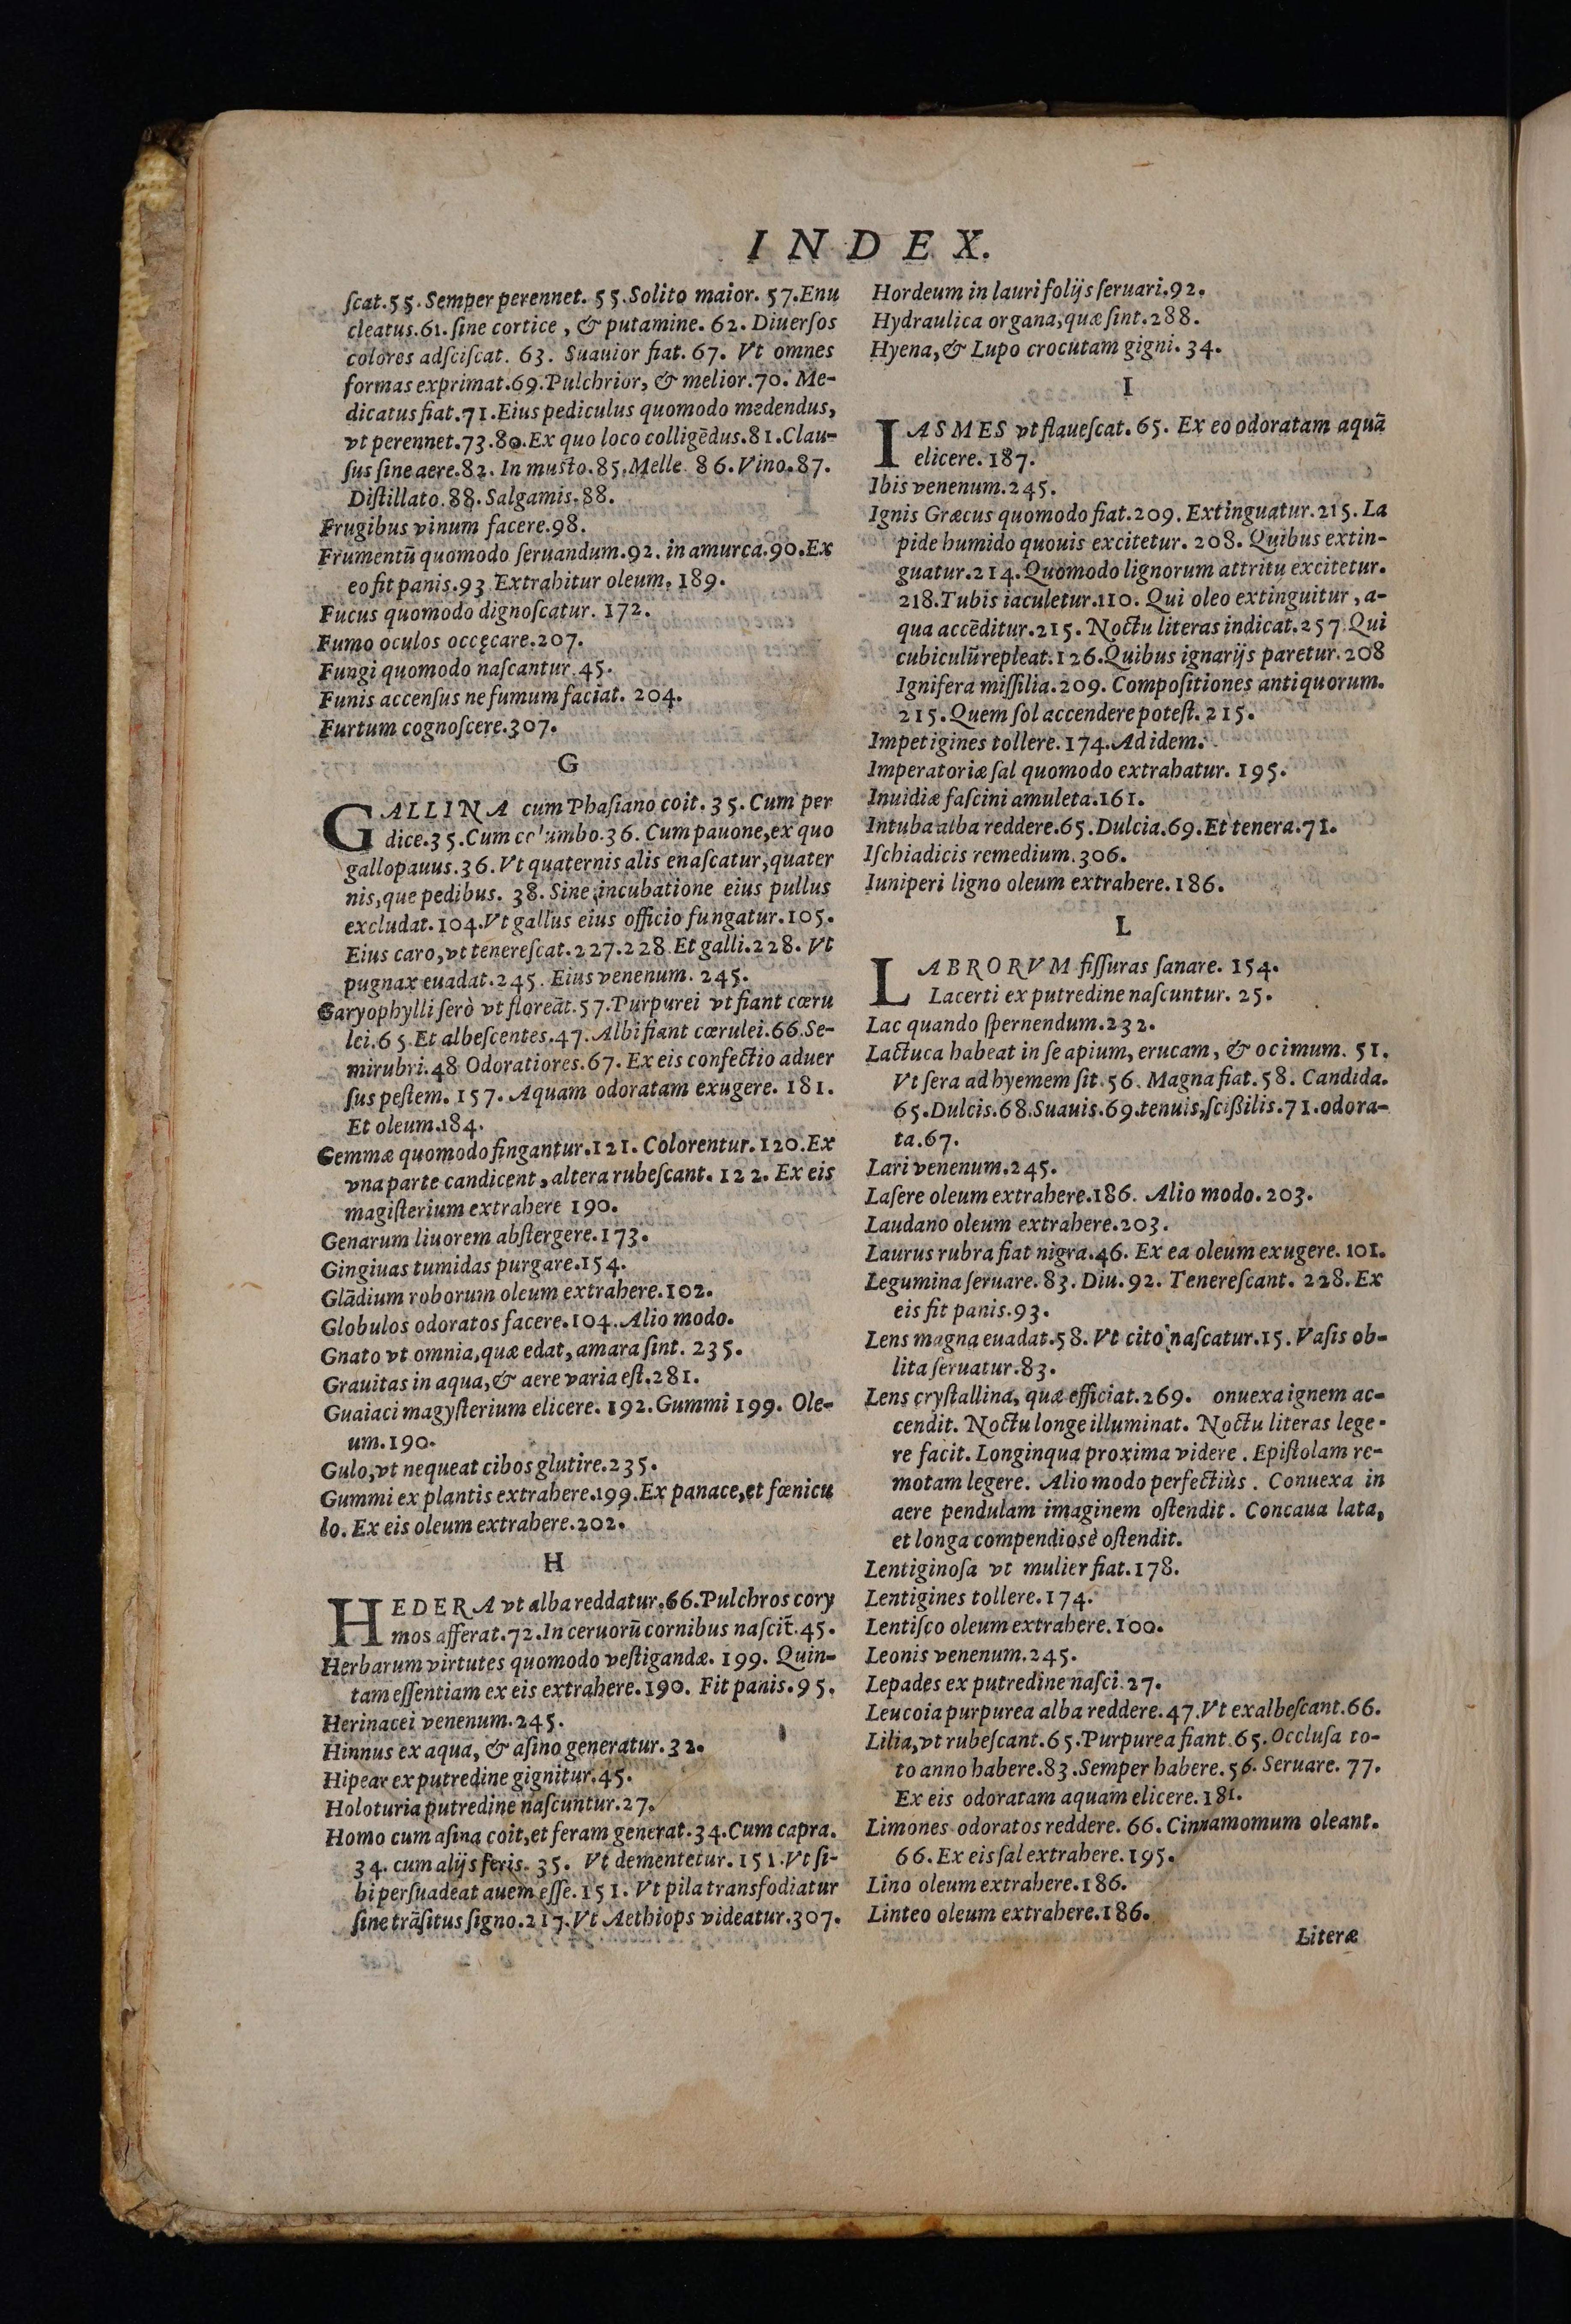 INDEX.
ſcat.55. Semper perennet. 55. Solito maior. 57. Enu
cleatus.61. ſine cortice, & putamine. 62. Diuerſos
colores adſciſcat. 63. Suauior fiat. 67. Vt omnes
formas exprimat.69. Pulchrior, & melior.70. Me-
dicatus fiat.71. Eius pediculus quomodo medendus,
vt perennet.73.80. Ex quo loco colligēdus.81. Clau-
ſus ſine aere.82. In muſto.85. Melle. 86. Vino.87.
Diſtillato.88. Salgamis.88.
Frugibus vinum facere.98.
Frumentū quomodo ſeruandum.92. in amurca.90. Ex
eo fit panis.93 Extrahitur oleum. 189.
Fucus quomodo dignoſcatur. 172.
Fumo oculos occęcare.207.
Fungi quomodo naſcantur.45.
Funis accenſus ne fumum faciat. 204.
Furtum cognoſcere.307.
G
GALLINA cum Phaſiano coit. 35. Cum per
dice.35. Cum columbo.36. Cum pauone, ex quo
gallopauus.36. Vt quaternis alis enaſcatur, quater
nis, que pedibus. 38. Sine incubatione eius pullus
excludat.104. Vt gallus eius officio fungatur.105.
Eius caro, vt tenereſcat.227.228. Et galli.228. Vt
pugnax euadat.245. Eius venenum. 245.
Garyophylli ſerò vt floreāt.57. Purpurei vt fiant cœru
lei.65. Et albeſcentes.47. Albi fiant cœrulei.66. Se-
mirubri.48 Odoratiores.67. Ex eis confectio aduer
ſus peſtem. 157. Aquam odoratam exugere. 181.
Et oleum.184.
Gemmæ quomodo fingantur.121. Colorentur.120. Ex
vna parte candicent, altera rubeſcant. 122. Ex eis
magiſterium extrahere 190.
Genarum liuorem abſtergere.173.
Gingiuas tumidas purgare.154.
Glādium roborum oleum extrahere.102.
Globulos odoratos facere.104. Alio modo.
Gnato vt omnia, quæ edat, amara ſint. 235.
Grauitas in aqua, & aere varia eſt.281.
Guaiaci magyſterium elicere. 192. Gummi 199. Ole-
um.190.
Gulo, vt nequeat cibos glutire.235.
Gummi ex plantis extrahere.199. Ex panace, et fœnicu
lo. Ex eis oleum extrahere.202.
H
HEDERA vt alba reddatur.66. Pulchros cory
mos afferat.72. In ceruorū cornibus naſcit̄.45.
Herbarum virtutes quomodo veſtigandæ. 199. Quin-
tam eſſentiam ex eis extrahere.190. Fit panis.95.
Herinacei venenum.245.
Hinnus ex aqua, & aſino generatur.32.
Hipear ex putredine gignitur.45.
Holoturia putredine naſcuntur.27.
Homo cum aſina coit, et feram generat.34. Cum capra.
34. cum alijs feris. 35. Vt dementetur. 151. Vt ſi-
bi perſuadeat auem eſſe.151. Vt pila transfodiatur
ſine trāſitus ſigno.217. Vt Aethiops videatur.307.
Hordeum in lauri folijs ſeruari.92.
Hydraulica organa, quæ ſint.288.
Hyena, & Lupo crocutam gigni. 34.
I
IASMES vt flaueſcat. 65. Ex eo odoratam aquā
elicere.187.
Ibis venenum.245.
Ignis Græcus quomodo fiat.209. Extinguatur.215. La
pide humido quouis excitetur. 208. Quibus extin-
guatur.214. Quomodo lignorum attritu excitetur.
218. Tubis iaculetur.110. Qui oleo extinguitur, a-
qua accēditur.215. Noctu literas indicat.257. Qui
cubiculū repleat.126. Quibus ignarijs paretur.208
Ignifera miſſilia.209. Compoſitiones antiquorum.
215. Quem ſol accendere poteſt.215.
Impetigines tollere.174. Ad idem.
Imperatoriæ ſal quomodo extrahatur. 195.
Inuidiæ faſcini amuleta.161.
Intuba alba reddere.65. Dulcia.69. Et tenera.71.
Iſchiadicis remedium.306.
Iuniperi ligno oleum extrahere.186.
L
LABRORVM fiſſuras ſanare. 154.
Lacerti ex putredine naſcuntur. 25.
Lac quando ſpernendum.232.
Lactuca habeat in ſe apium, erucam, & ocimum. 51.
Vt ſera ad hyemem ſit.56. Magna fiat.58. Candida.
65. Dulcis.68. Suauis.69. tenuis, ſciſsilis.71. odora-
ta.67.
Lari venenum.245.
Laſere oleum extrahere.186. Alio modo.203.
Laudano oleum extrahere.203.
Laurus rubra fiat nigra.46. Ex ea oleum exugere. 101.
Legumina ſeruare.83. Diu.92. Tenereſcant. 228. Ex
eis fit panis.93.
Lens magna euadat.58. Vt cito naſcatur.15. Vaſis ob-
lita ſeruatur.83.
Lens cryſtallina, quæ efficiat.269. onuexa ignem ac-
cendit. Noctu longe illuminat. Noctu literas lege-
re facit. Longinqua proxima videre. Epiſtolam re-
motam legere. Alio modo perfectiùs. Conuexa in
aere pendulam imaginem oſtendit. Concaua lata,
et longa compendiosè oſtendit.
Lentiginoſa vt mulier fiat.178.
Lentigines tollere.174.
Lentiſco oleum extrahere.100.
Leonis venenum.245.
Lepades ex putredine naſci.27.
Leucoia purpurea alba reddere.47. Vt exalbeſcant.66.
Lilia, vt rubeſcant.65. Purpurea fiant.65. Occluſa to-
to anno habere.83. Semper habere.56. Seruare. 77.
Ex eis odoratam aquam elicere.181.
Limones odoratos reddere. 66. Cinnamomum oleant.
66. Ex eis ſal extrahere.195.
Lino oleum extrahere.186.
Linteo oleum extrahere.186.
Literæ